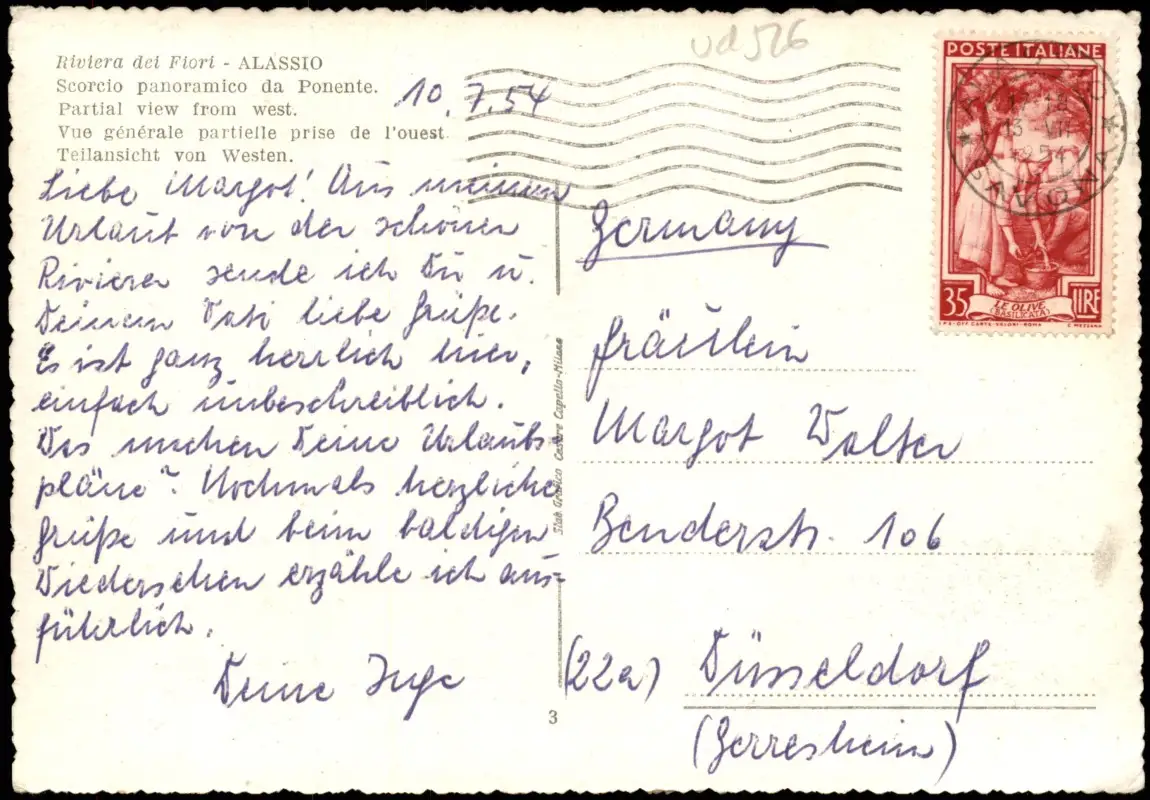 ud 526
Riviera dei Fiori - ALASSIO
Scorcio panoramico da Ponente.
Partial view from west.
Vue générale partielle prise de l'ouest
Teilansicht von Westen.
10. 7. 54
Liebe Margot! Aus meinem
Urlaub von der schönen
Riviera sende ich Dir u.
Deinem Vati liebe Grüße.
Es ist ganz herrlich hier,
einfach unbeschreiblich.
Was machen Deine Urlaubs-
pläne? Nochmals herzliche
Grüße und beim baldigen
Wiedersehen erzähle ich aus-
führlich.
Deine Inge
3
Stab. Grafico Cesare Capello-Milano
POSTE ITALIANE
35 LIRE
LE OLIVE
(BASILICATA)
I.P.S.-OFF. CARTE-VALORI-ROMA
C. MEZZANA
13 VII
SAVONA
Germany
Fräulein
Margot Walter
Benderstr. 106
(22a) Düsseldorf
(Gerresheim)